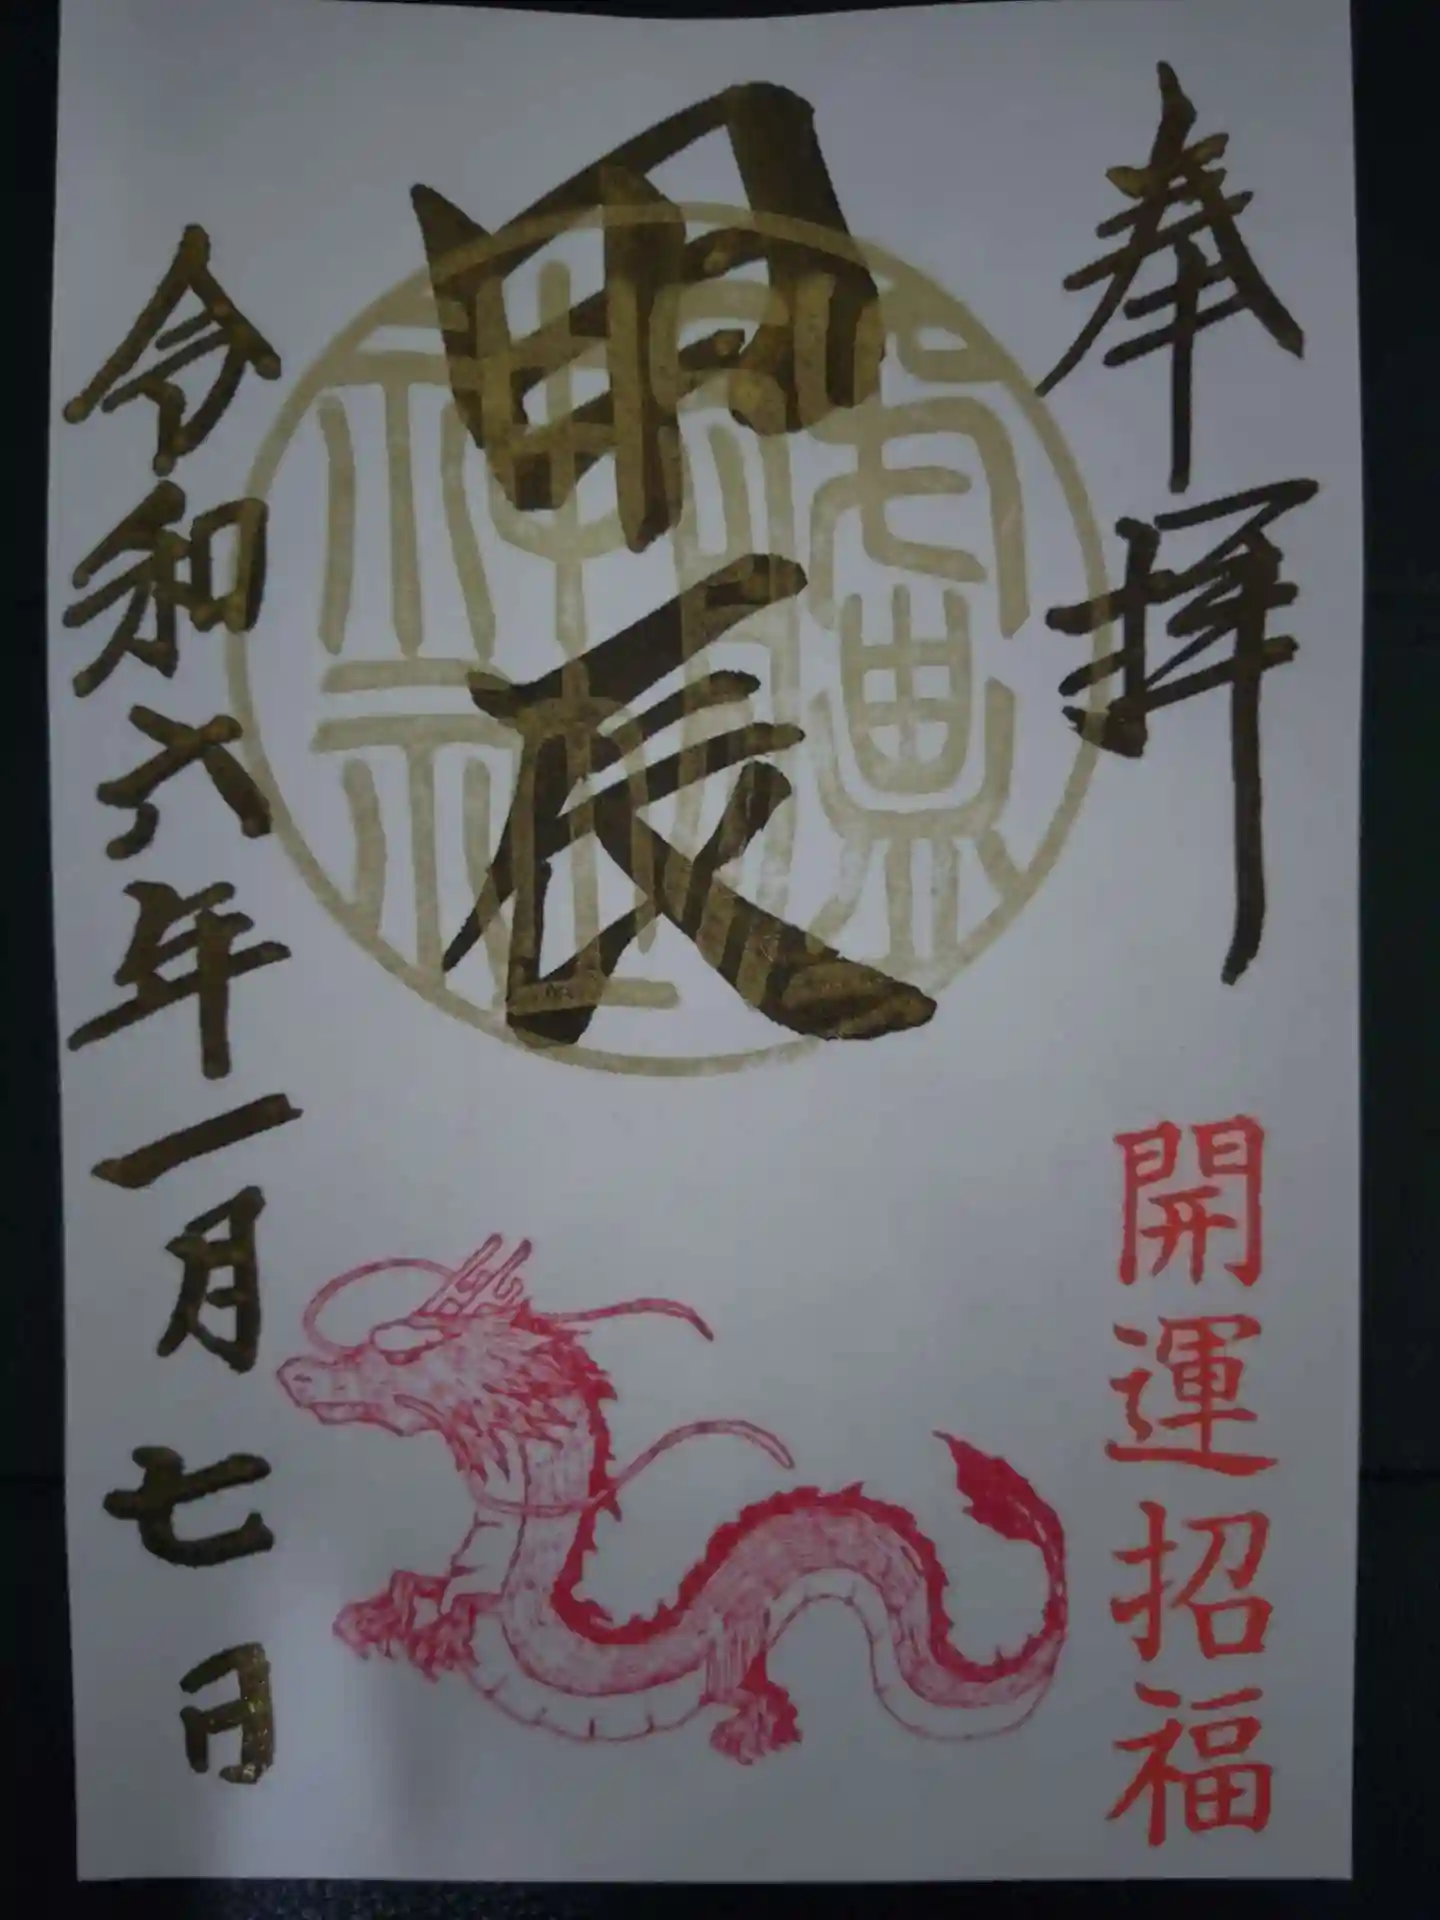 奉拝
開運招福
甲辰
令和六年一月七日